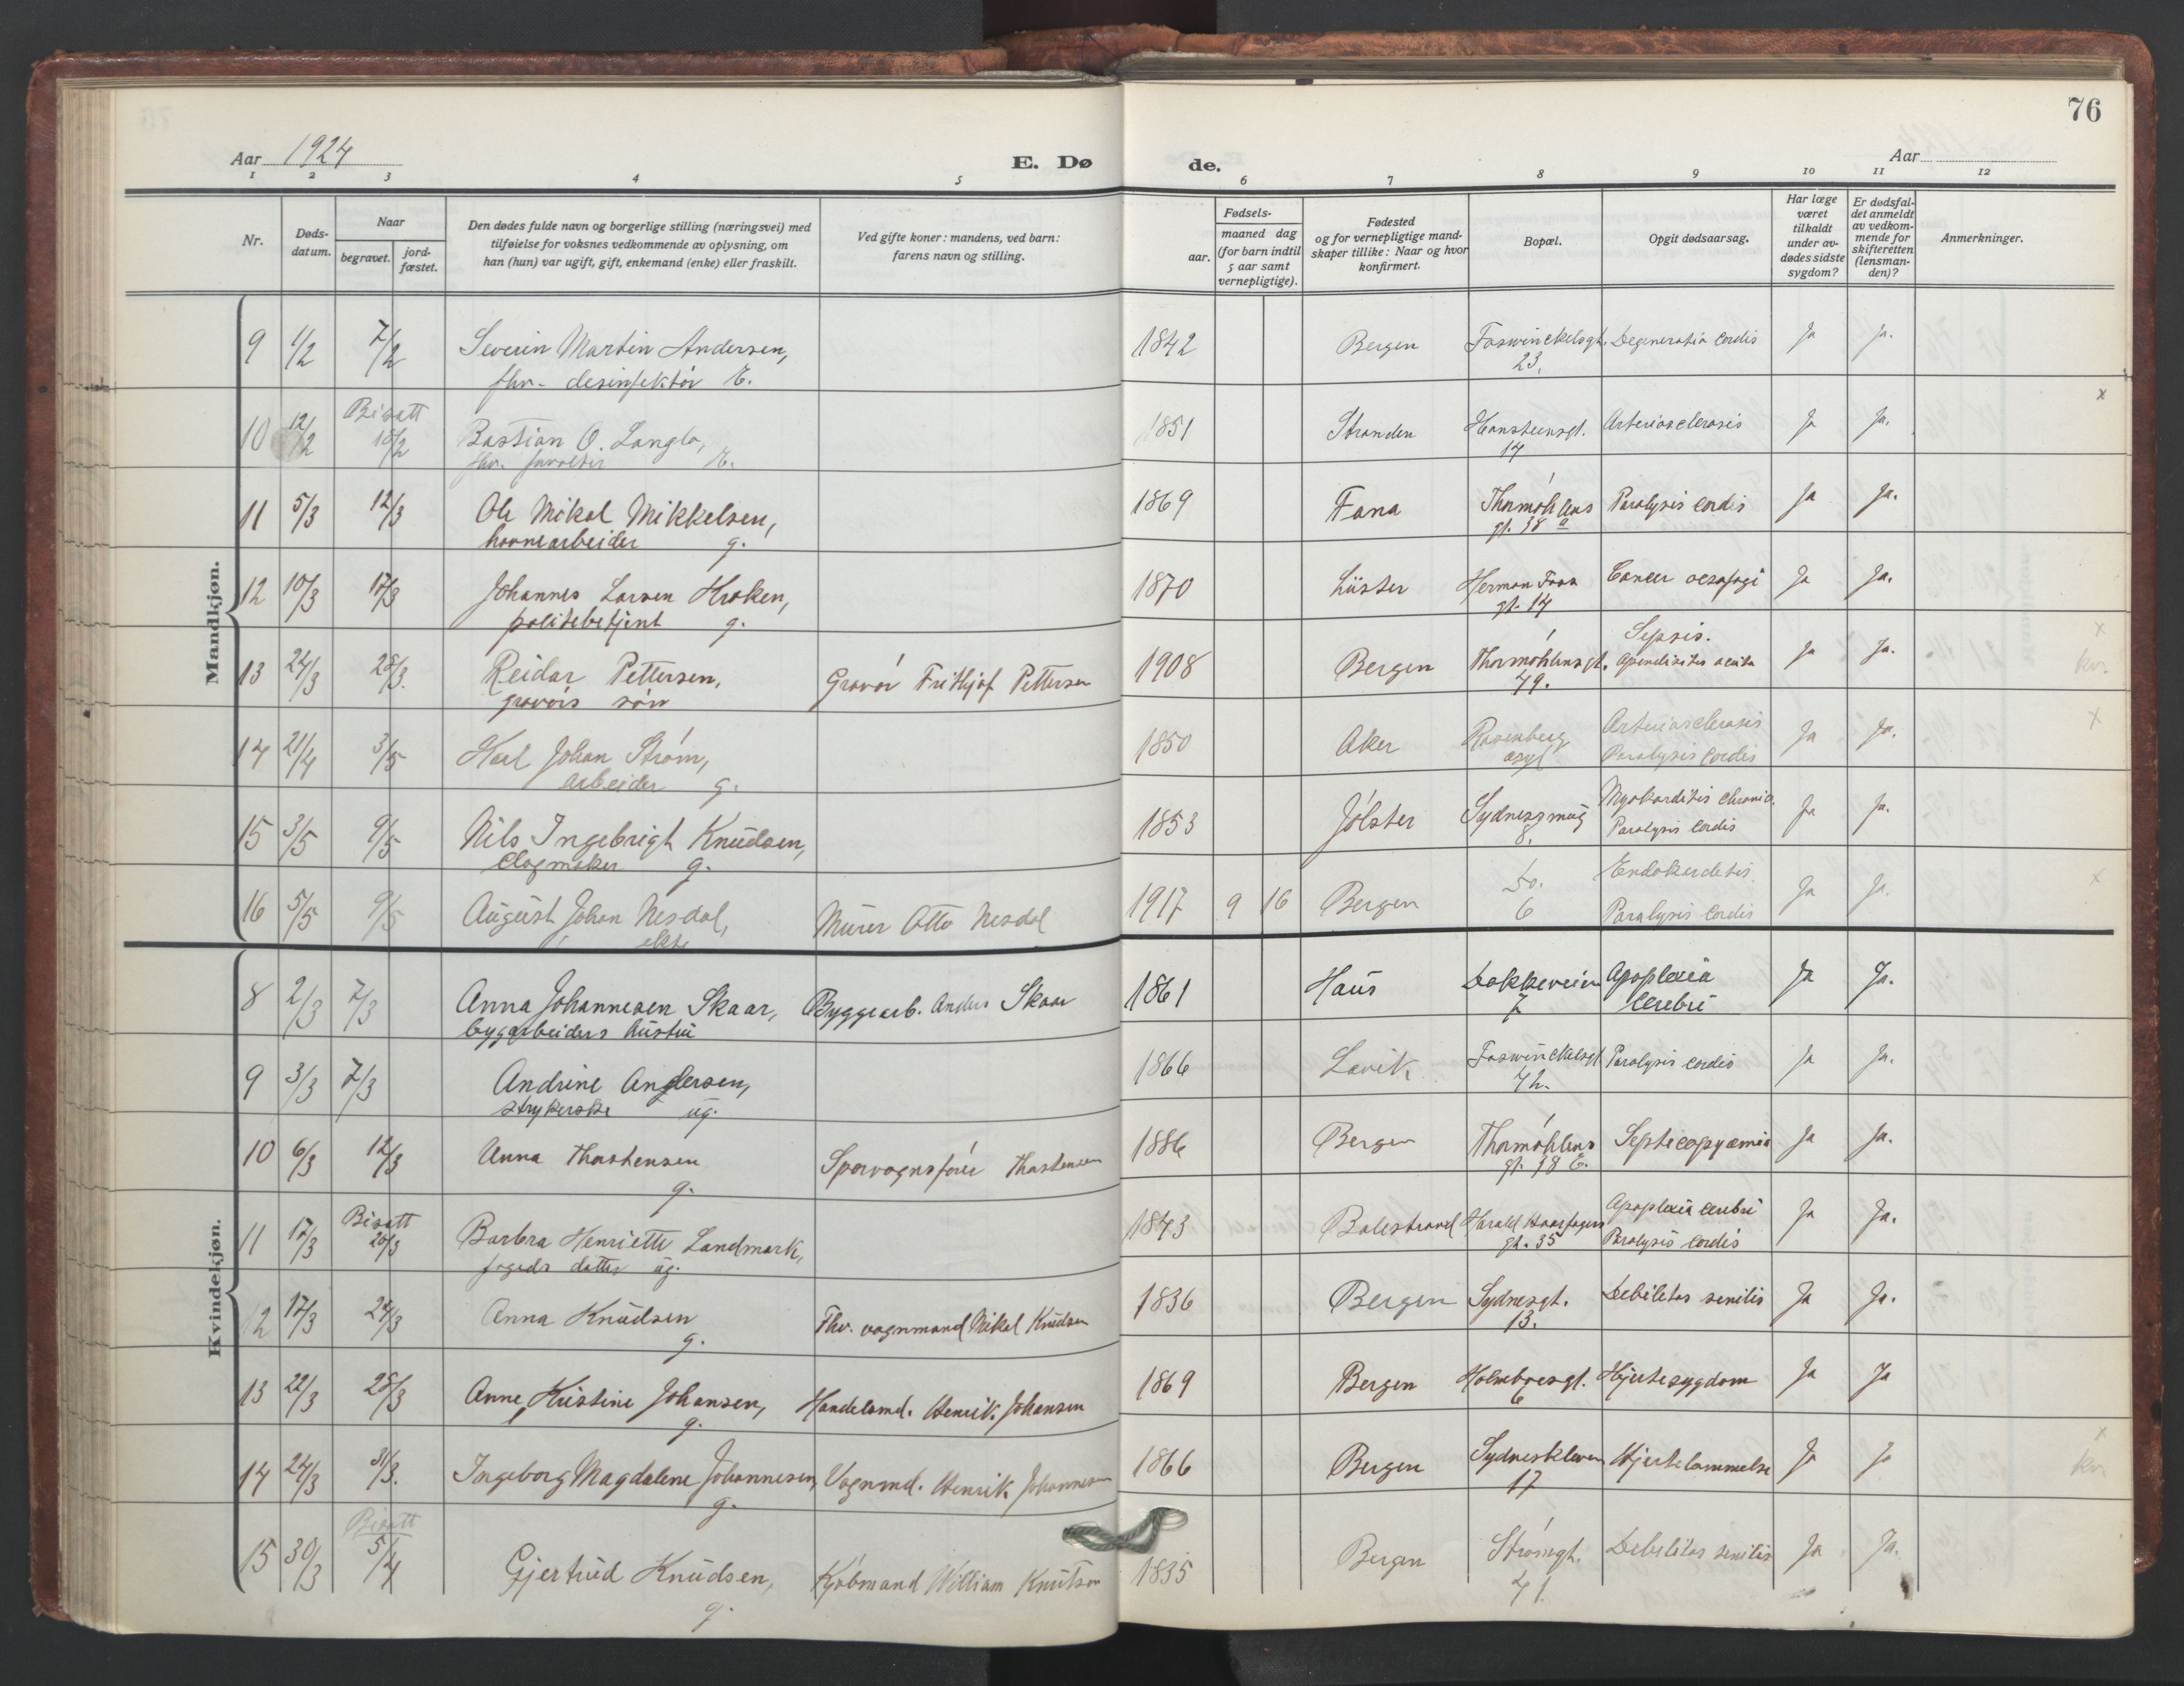 76
Aar 1924
E. Dø de.
Aar
1 2 3 4 5 6 7 8 9 10 11 12
Nr.
Døds-
datum.
Naar
begravet.
jord-
fæstet.
Den dødes fulde navn og borgerlige stilling (næringsvei) med
tilføielse for voksnes vedkommende av oplysning, om
han (hun) var ugift, gift, enkemand (enke) eller fraskilt.
Ved gifte koner: mandens, ved barn:
farens navn og stilling.
Fødsels-
aar.
maaned dag
(for barn indtil
5 aar samt
vernepligtige).
Fødested
og for vernepligtige mand-
skaper tillike: Naar og hvor
konfirmert.
Bopæl.
Opgit dødsaarsag.
Har læge
været
tilkaldt
under av-
dødes sidste
sygdom?
Er dødsfal-
det anmeldt
av vedkom-
mende for
skifteretten
(lensman-
den)?
Anmerkninger.
Mandkjøn.
9 1/2 7/2 Severin Martin Andersen, 1842 Bergen Foswinckelsgt. Degeneratio cordis Ja Ja.
fhv. desinfektør E. 23.
Bisatt x
10 12/2 18/2 Bastian O. Langlo, 1851 Stranden Hansteensgt. Arteriosclerosis Ja Ja.
fhv. E. 14
11 5/3 12/3 Ole Mikal Mikkelsen, 1869 Fana Thormøhlens Paralysis cordis Ja Ja.
havnearbeider g. gt. 38 a
12 10/3 17/3 Johannes Larsen Kroken, 1870 Lüster Herman Foss Cancer oesofagi Ja Ja.
politibetjent g. gt. 14
Sepsis. x
13 24/3 28/3. Reidar Pettersen, Gravør Frithjof Pettersen 1908 Bergen Thormøhlensgt. Apendisitis acuta Ja Ja. kv.
gravørs søn 49.
14 21/4 3/5 Karl Johan Strøm, 1850 Aker Rosenberg Arteriosclerosis Ja Ja. x
arbeider g. asyl Paralysis cordis
15 3/5 9/5 Nils Ingebrigt Knudsen, 1853 Jølster Sydnessmug Myokarditis chronica. Ja Ja.
klogmaker g. 8. Paralysis cordis
16 5/5 9/5 August Johan Nesdal, Murer Otto Nesdal 1917 9 16 Bergen Do. Endokarditis Ja Ja. x
ekte 6 Paralysis cordis
Kvindekjøn.
8 2/3 7/3 Anna Johannesen Skaar, Byggearb. Anders Skaar 1861 Haus Dokkeveien Apoplexia Ja Ja.
bygarbeiders hustru 7 cerebri
9 3/3 7/3 Andrine Andersen, 1866 Lavik Foswinckelsgt Paralysis cordis Ja Ja.
strykerske ug. 42.
10 6/3 12/3 Anna Thorstensen Sporvognsfører Thorstensen 1886 Bergen Thormøhlens Septicopyæmia Ja Ja.
g. gt. 38 b.
Bisatt
11 17/3 20/3 Barbra Henriette Landmark, 1843 Balestrand Harald Haarfagers Apoplexia cerebri Ja Ja.
fogeds datter ug. gt. 35 Paralysis cordis
12 17/3 24/3 Anna Knudsen Fhv. vognmand Mikal Knudsen 1836 Bergen Sydnesgt. Debilitas senilis Ja Ja.
g. 13.
13 22/3 28/3 Anne Kristine Johansen, Handelsmd. Henrik Johansen 1869 Bergen Holmboesgt. Hjertesygdom Ja Ja
g. 6
x
14 24/3 31/3. Ingeborg Magdalene Johannesen, Vognmd. Henrik Johannesen 1866 Bergen Sydneskleven Hjertelammelse Ja Ja kv
g. 17
Bisatt
15 30/3 5/4 Gjertrud Knudsen, Kjøbmand William Knutson 1835 Bergen Strømgt. Debilitas senilis Ja Ja.
g. 41.